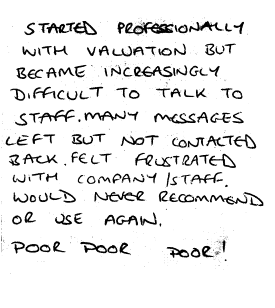 STARTED PROFESSIONALLY
WITH VALUATION BUT
BECAME INCREASINGLY
DIFFICULT TO TALK TO
STAFF. MANY MESSAGES
LEFT BUT NOT CONTACTED
BACK. FELT FRUSTRATED
WITH COMPANY/STAFF.
WOULD NEVER RECOMMEND
OR USE AGAIN.
POOR POOR POOR!